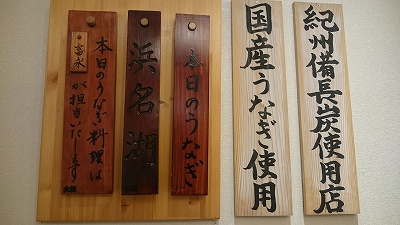 紀州備長炭使用店
国産うなぎ使用
本日のうなぎ
浜名湖
本日のうなぎ料理は
富永
が担当いたします